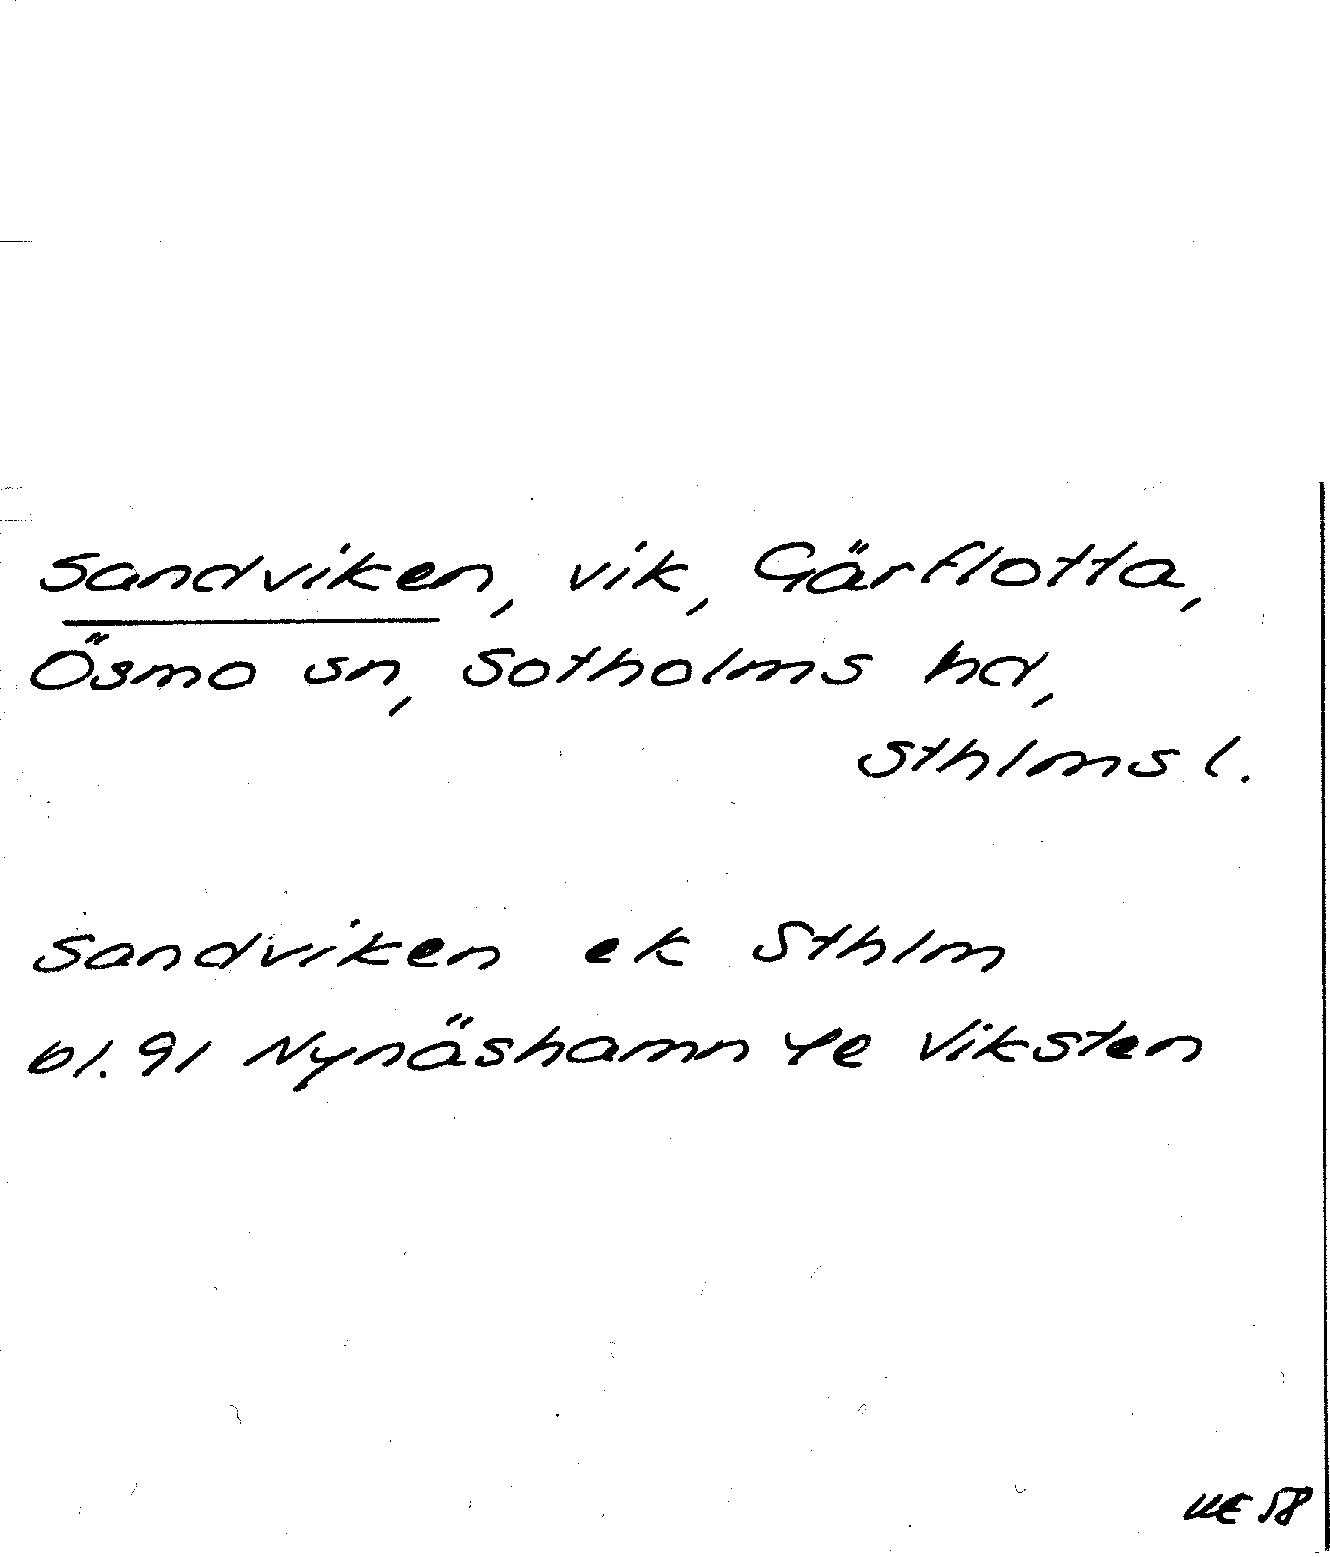 Sandviken, vik, Gårflotta,
Ösmo sn, Sotholms hd,
Sthlms l.
Sandviken ek Sthlm
bl. 91 Nynäshamn 4e Viksten
UE 58